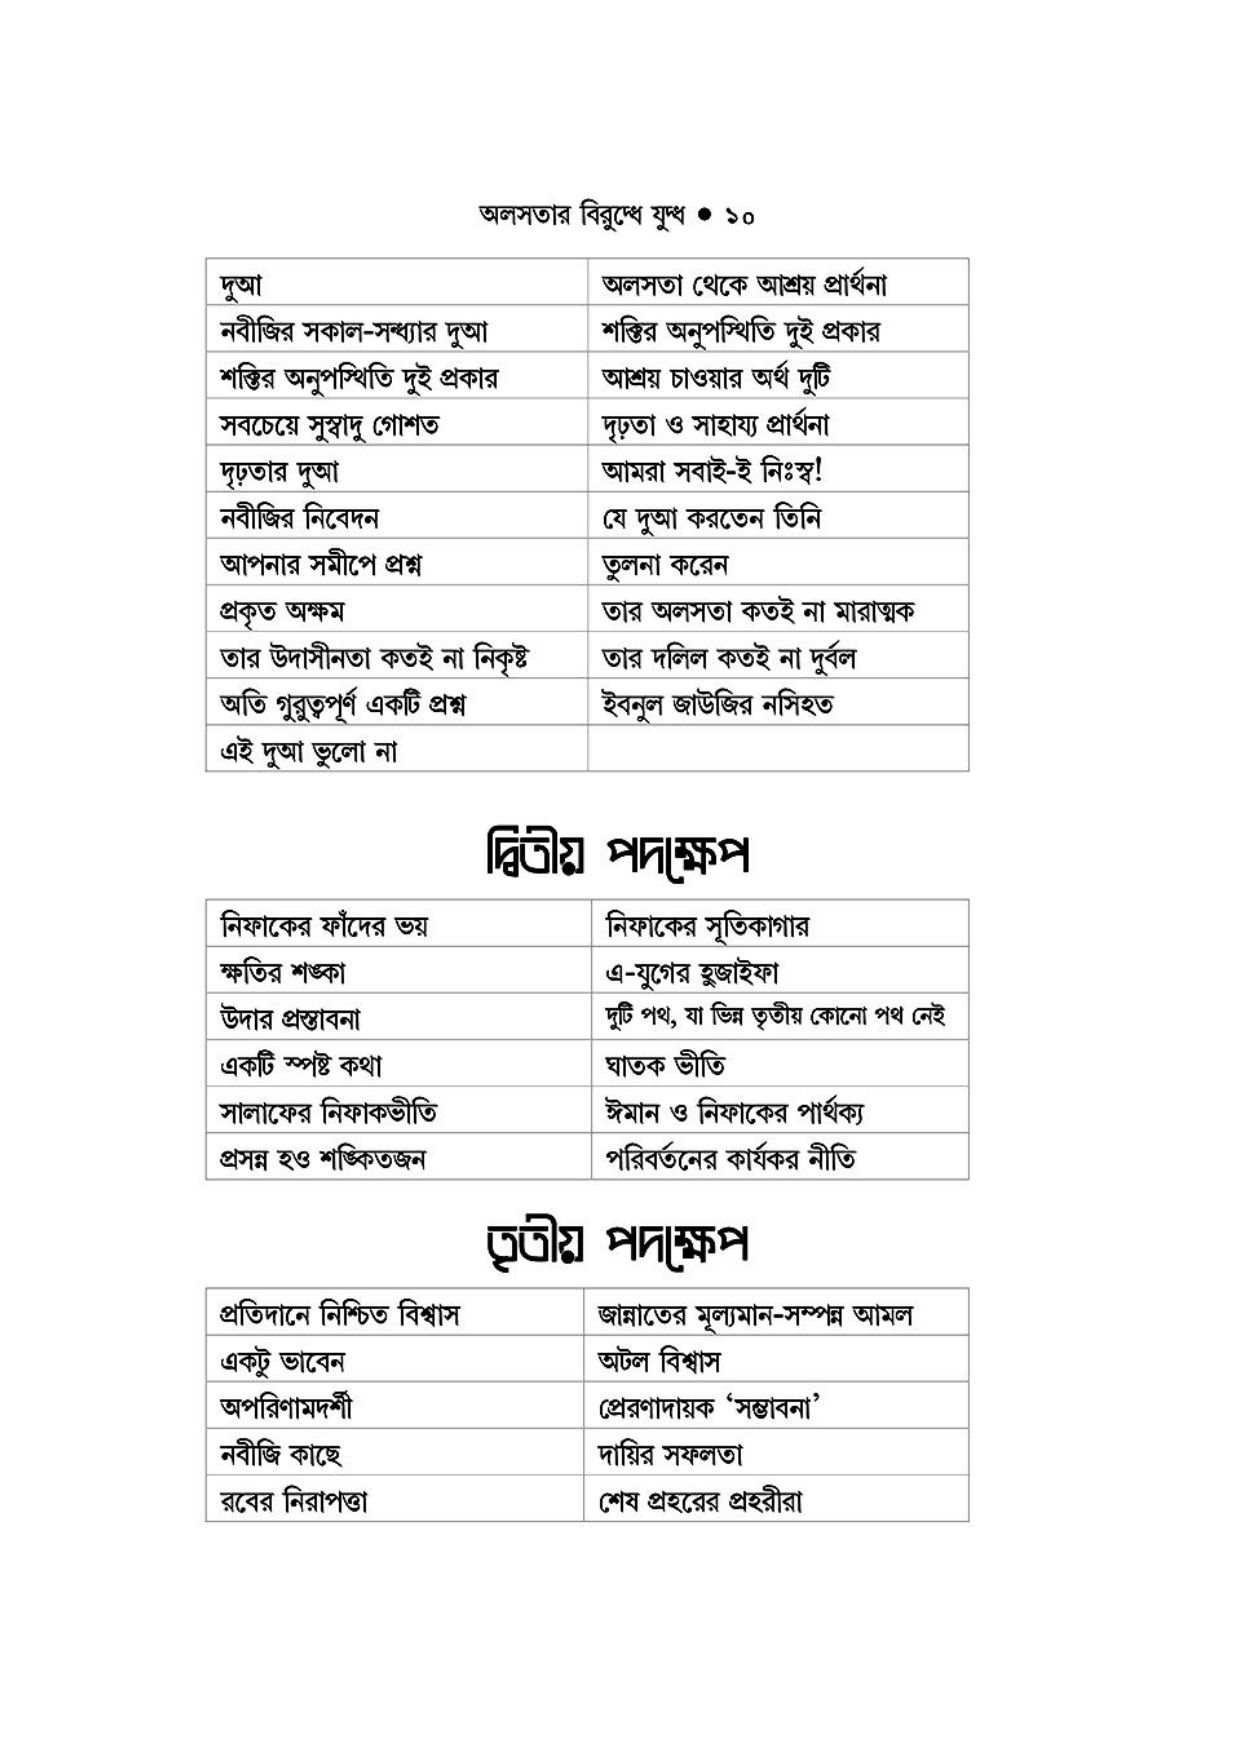 অলসতার বিরুদ্ধে যুদ্ধ ● ১০
দুআ	অলসতা থেকে আশ্রয় প্রার্থনা
নবীজির সকাল-সন্ধ্যার দুআ	শক্তির অনুপস্থিতি দুই প্রকার
শক্তির অনুপস্থিতি দুই প্রকার	আশ্রয় চাওয়ার অর্থ দুটি
সবচেয়ে সুস্বাদু গোশত	দৃঢ়তা ও সাহায্য প্রার্থনা
দৃঢ়তার দুআ	আমরা সবাই-ই নিঃস্ব!
নবীজির নিবেদন	যে দুআ করতেন তিনি
আপনার সমীপে প্রশ্ন	তুলনা করেন
প্রকৃত অক্ষম	তার অলসতা কতই না মারাত্মক
তার উদাসীনতা কতই না নিকৃষ্ট	তার দলিল কতই না দুর্বল
অতি গুরুত্বপূর্ণ একটি প্রশ্ন	ইবনুল জাউজির নসিহত
এই দুআ ভুলো না
দ্বিতীয় পদক্ষেপ
নিফাকের ফাঁদের ভয়	নিফাকের সূতিকাগার
ক্ষতির শঙ্কা	এ-যুগের হুজাইফা
উদার প্রস্তাবনা	দুটি পথ, যা ভিন্ন তৃতীয় কোনো পথ নেই
একটি স্পষ্ট কথা	ঘাতক ভীতি
সালাফের নিফাকভীতি	ঈমান ও নিফাকের পার্থক্য
প্রসন্ন হও শঙ্কিতজন	পরিবর্তনের কার্যকর নীতি
তৃতীয় পদক্ষেপ
প্রতিদানে নিশ্চিত বিশ্বাস	জান্নাতের মূল্যমান-সম্পন্ন আমল
একটু ভাবেন	অটল বিশ্বাস
অপরিণামদর্শী	প্রেরণাদায়ক ‘সম্ভাবনা’
নবীজি কাছে	দায়ির সফলতা
রবের নিরাপত্তা	শেষ প্রহরের প্রহরীরা